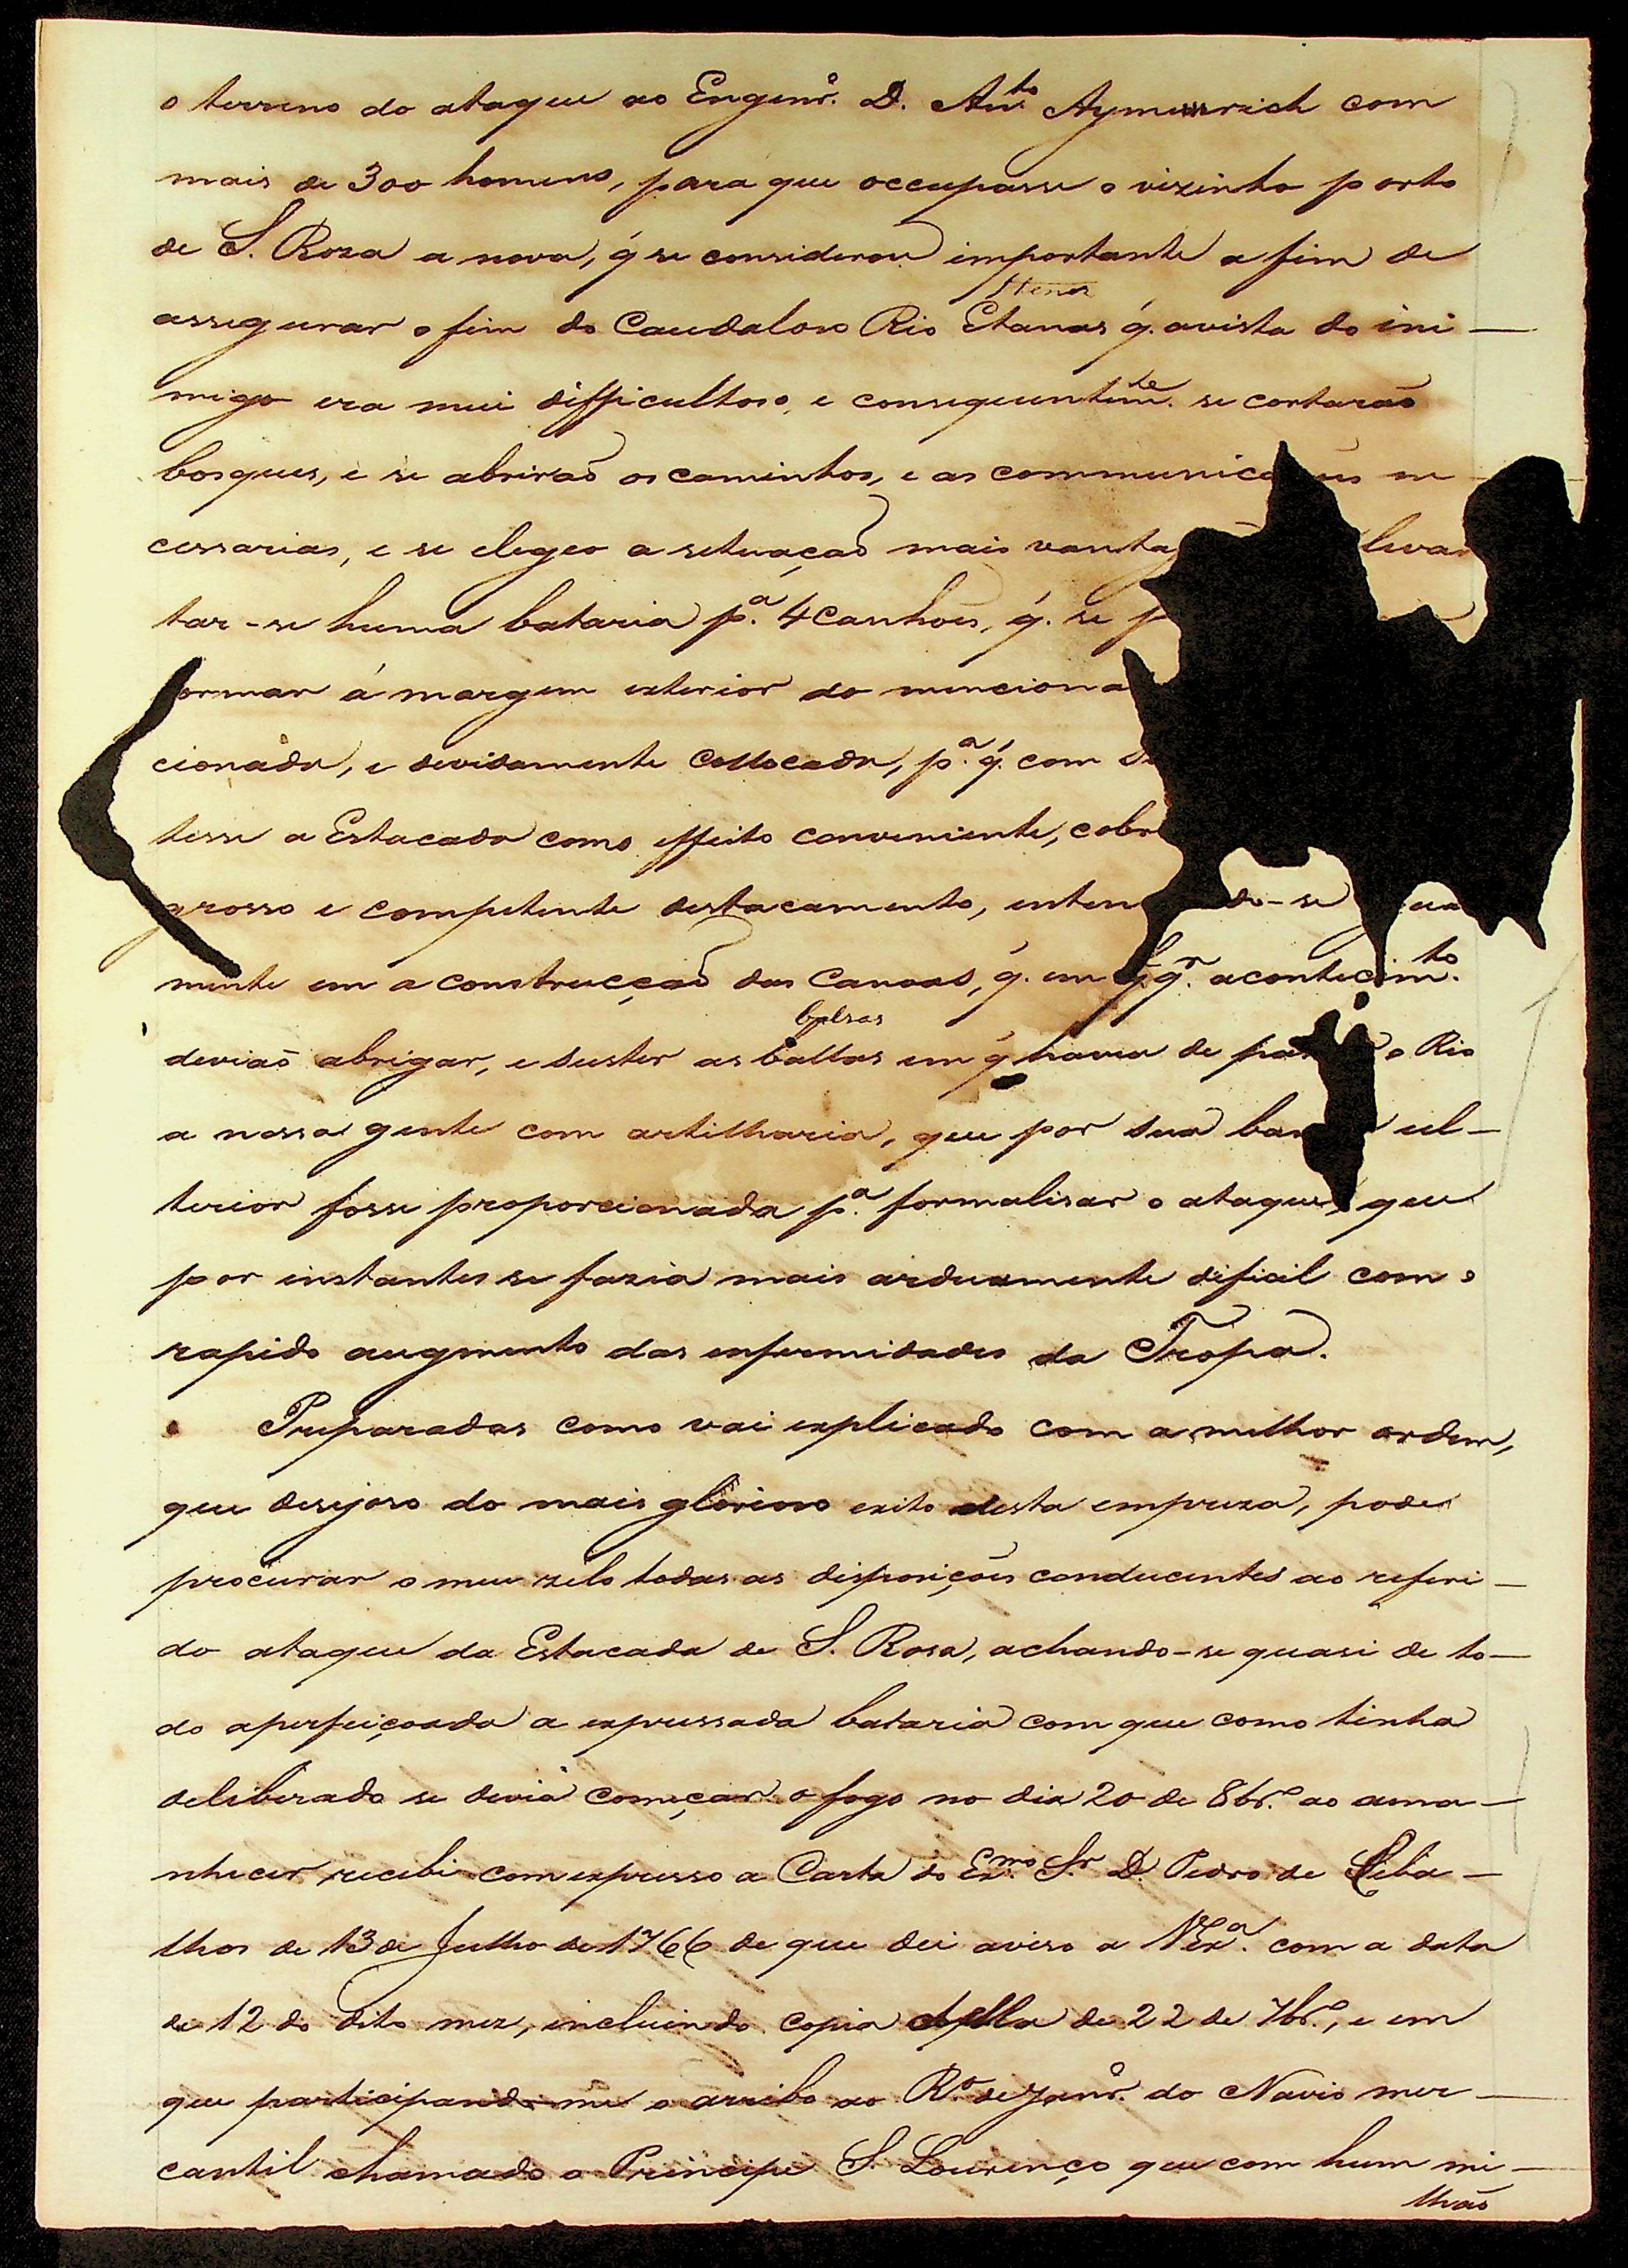 o terreno do ataque ao Engenr.º D. Ant.to Aymerrich com
mais de 300 homens, para que occupasse o vizinho porto
de S. Roza a nova, q̃ se considerou importante a fim de
assegurar o fim do Caudaloso Rio Etanas q̃. avista do ini-
migo era mui difficultoso, e consequentem.te se cortarão
bosques, e se abrirão os caminhos, e as communica es ne-
cessarias, e se elegeo a setuação mais vanta levan
tar-se huma bataria p.ª 4 Canhoes, q̃. se p
ormar á margem exterior do menciona
cionada, e devidamente collocada, p.ª q̃. com
tesse a Estacada como effeito conveniente, cobr
grosso e competente destacamento, enten do-se ua
mente em a construcção das Canoas, q̃. em q̃.q.r acontecim.to
balsas
devião abrigar, e suster as ballas em q̃ havia de pa o Rio
a nossa gente com artilharia, que por sua ban ul-
terior fosse proporcionada p.ª formalisar o ataque, que
por instantes se fazia mais arduamente dificil com o
rapido augmento das enfermidades da Tropa.
Preparadas como vai explicado com a melhor ordem,
que desejoso do mais glorioso exito desta empreza, pode
procurar o meu zelo todas as disposições conducentes ao referi-
do ataque da Estacada de S. Rosa, achando-se quasi de to-
do aperfeiçoada a expressada bataria com que como tinha
deliberado se devia começar o fogo no dia 20 de 8br.º ao ama-
nhecer recebi com expresso a Carta do Ex.mo S.r D. Pedro de Ceba-
lhos de 13 de Julho de 1766 de que dei aviso a V.Ex.ª com a data
de 12 do dito mez, incluindo copia della de 22 de 7br.º, e em
que participando-me o arribo ao R.º de Janr.º do Navio mer-
cantil chamado o Principe S. Lourenço que com hum mi-
lhão